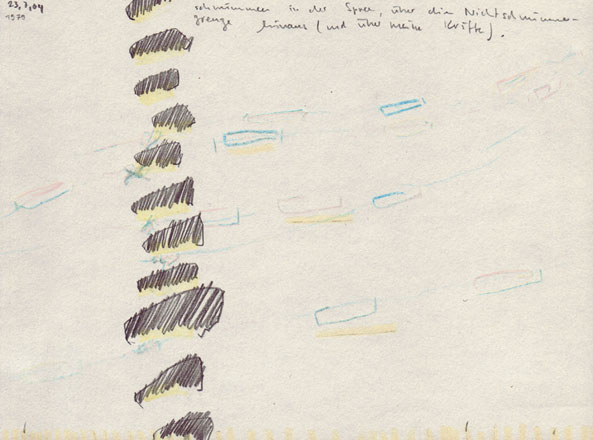 23.7.04
schwimmen in der Spree, über die Nichtschwimmer-
grenze hinaus (und über meine Kräfte).